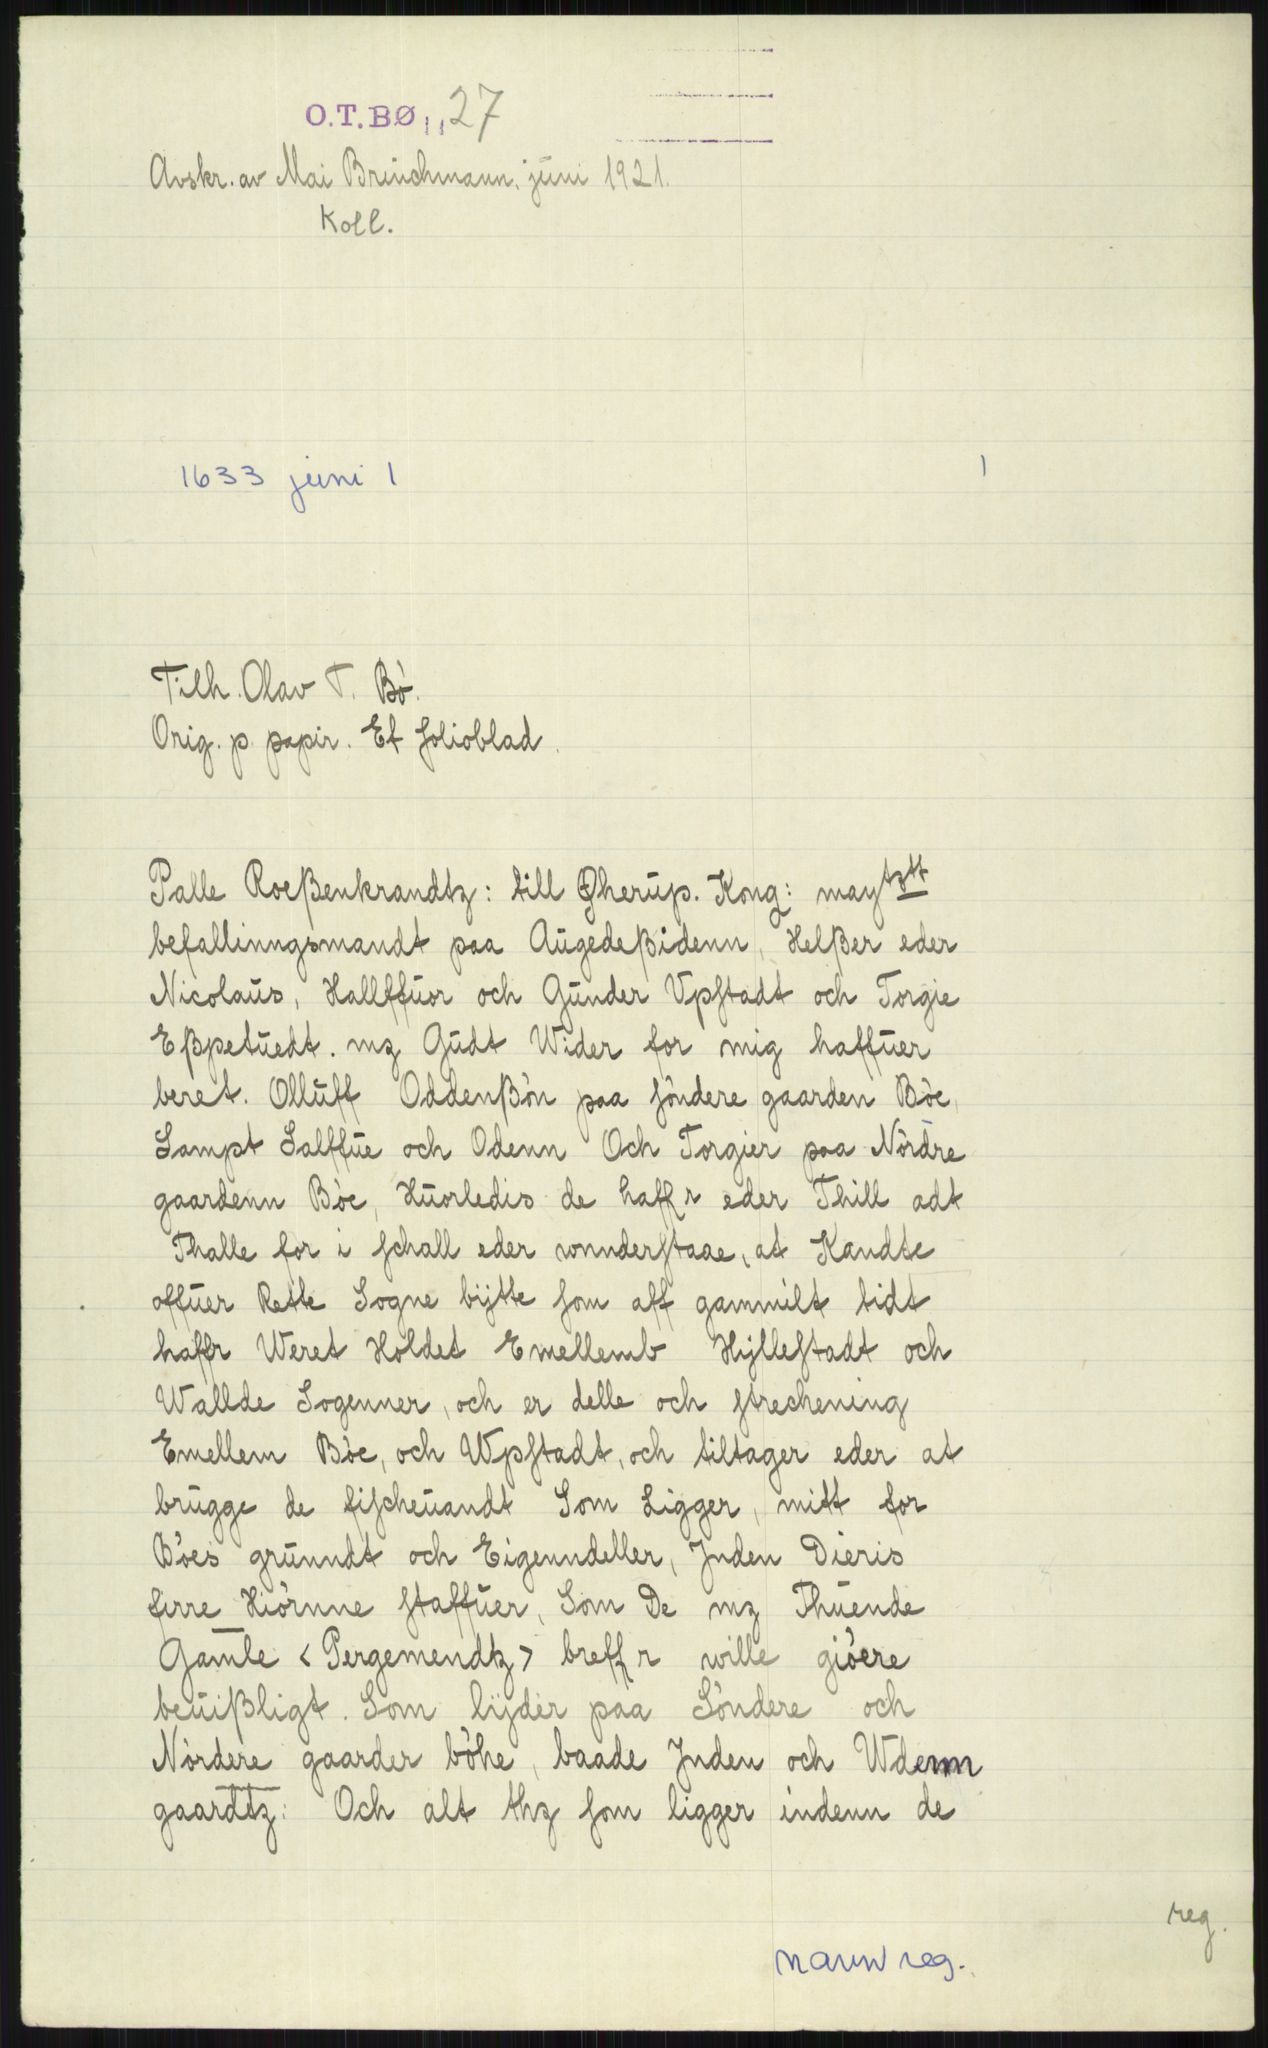 O.T.BØ,, 27
Avskr. av Mai Brüchmann, juni 1921.
Koll.
1633 juni 1
1
Tilh. Olav T. Bö.
Orig. p. papir. Et folioblad.
Palle Roeßenkrandtz: till Øherup. Kong: maytztt
befallinngsmandt paa Augedeßidenn, Helßer eder
Nicolaus, Hallffuor och Gunder Vpstadt och Torgie
Eßpetuedt. mz Gudt Wider for mig haffuer
beret. Olluff Oddenßön paa söndere gaarden Böe,
Sampt Salffue och Odenn Och Torgier paa Nördre
gaardenn Böe, Huorledis de haffr eder Thill adt
Thalle for i schall eder wnnderstaae, at Kandte
offuer Rette Sogne bijtte som aff gammilt tidt
haffr Weret Holdet Emellemb Hyllestadt och
Wallde Sogenner, och er delle och streckening
Emellem Böe, och Wpstadt, och tiltager eder at
brugge de fischeuandt Som Ligger, mitt for
Böes grunndt och Eigenndeller, Jnden Dieris
firre Hiörnne staffuer, Som De mz Thuende
Gamle < Pergemendtz > breffr wille giöere
beuißligt. Som lijder paa Söndere och
Nördere gaarder böhe, baade Jnden och Wdenn
gaardtz: Och alt thz som ligger indenn de
reg.
navnreg.